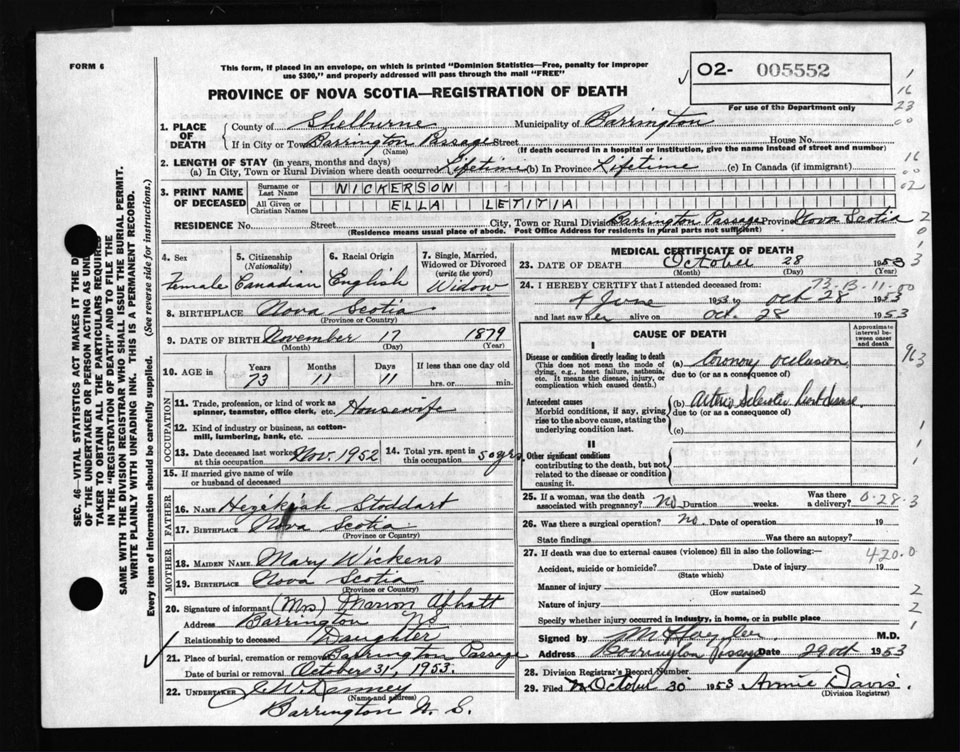 FORM 6
This form, if placed in an envelope, on which is printed "Dominion Statistics—Free, penalty for improper
use $300," and properly addressed will pass through the mail "FREE"
O2- 005552
For use of the Department only
PROVINCE OF NOVA SCOTIA—REGISTRATION OF DEATH
1. PLACE OF DEATH
County of Shelburne Municipality of Barrington
If in City or Town Barrington Passage Street House No.
(Name) (If death occurred in a hospital or institution, give the name instead of street and number)
2. LENGTH OF STAY (in years, months and days)
(a) In City, Town or Rural Division where death occurred Lifetime (b) In Province Lifetime (c) In Canada (if immigrant)
3. PRINT NAME OF DECEASED
Surname or Last Name NICKERSON
All Given or Christian Names ELLA LETITIA
RESIDENCE No. Street City, Town or Rural Division Barrington Passage Province Nova Scotia
(Residence means usual place of abode. Post Office Address for residents in rural parts not sufficient)
SEC. 46—VITAL STATISTICS ACT MAKES IT THE
OF THE UNDERTAKER OR PERSON ACTING AS
TAKER TO OBTAIN ALL THE PARTICULARS REQUIRED
IN THE "REGISTRATION OF DEATH" AND TO FILE THE
SAME WITH THE DIVISION REGISTRAR WHO SHALL ISSUE THE BURIAL PERMIT.
WRITE PLAINLY WITH UNFADING INK. THIS IS A PERMANENT RECORD.
Every item of information should be carefully supplied. (See reverse side for instructions.)
4. Sex
Female
5. Citizenship
(Nationality)
Canadian
6. Racial Origin
English
7. Single, Married,
Widowed or Divorced
(write the word)
Widow
8. BIRTHPLACE Nova Scotia
(Province or Country)
9. DATE OF BIRTH November 17 1879
(Month) (Day) (Year)
10. AGE in
Years Months Days If less than one day old
73 11 11 hrs. or min.
OCCUPATION
11. Trade, profession, or kind of work as
spinner, teamster, office clerk, etc. Housewife
12. Kind of industry or business, as cotton-
mill, lumbering, bank, etc.
13. Date deceased last worked
at this occupation Nov. 1952
14. Total yrs. spent in
this occupation 50 yrs
15. If married give name of wife
or husband of deceased
FATHER
16. NAME Hezikiah Stoddart
17. BIRTHPLACE Nova Scotia
(Province or Country)
MOTHER
18. MAIDEN NAME Mary Wickens
19. BIRTHPLACE Nova Scotia
(Province or Country)
20. Signature of informant (Mrs) Marion
Address Barrington NS
Relationship to deceased Daughter
21. Place of burial, cremation or removal Barrington Passage
Date of burial or removal October 31, 1953.
22. UNDERTAKER
(Name and address)
Barrington N. S.
MEDICAL CERTIFICATE OF DEATH
23. DATE OF DEATH October 28 1953
(Month) (Day) (Year)
73-B-11-00
24. I HEREBY CERTIFY that I attended deceased from:
4 June 1953 to Oct 28 1953
and last saw her alive on Oct. 28 1953
CAUSE OF DEATH
Approximate
interval be-
tween onset
and death
I
Disease or condition directly leading to death
(This does not mean the mode of
dying, e.g., heart failure, asthenia,
etc. It means the disease, injury, or
complication which caused death.)
(a) Coronary occlusion
due to (or as a consequence of)
Antecedent causes
Morbid conditions, if any, giving
rise to the above cause, stating the
underlying condition last.
(b) Arterio Sclerotic heart disease
due to (or as a consequence of)
(c)
II
Other significant conditions
contributing to the death, but not
related to the disease or condition
causing it.
25. If a woman, was the death
associated with pregnancy? No Duration weeks. Was there
a delivery? 0-28-3
26. Was there a surgical operation? No. Date of operation 19
State findings Was there an autopsy?
27. If death was due to external causes (violence) fill in also the following:— 420.0
Accident, suicide or homicide? Date of injury 19
(State which)
Manner of injury
(How sustained)
Nature of injury
Specify whether injury occurred in industry, in home, or in public place
Signed by M.D.
Address Barrington Passage Date 29 Oct 1953
28. Division Registrar's Record Number
29. Filed October 30 1953 Annie Davis.
(Division Registrar)